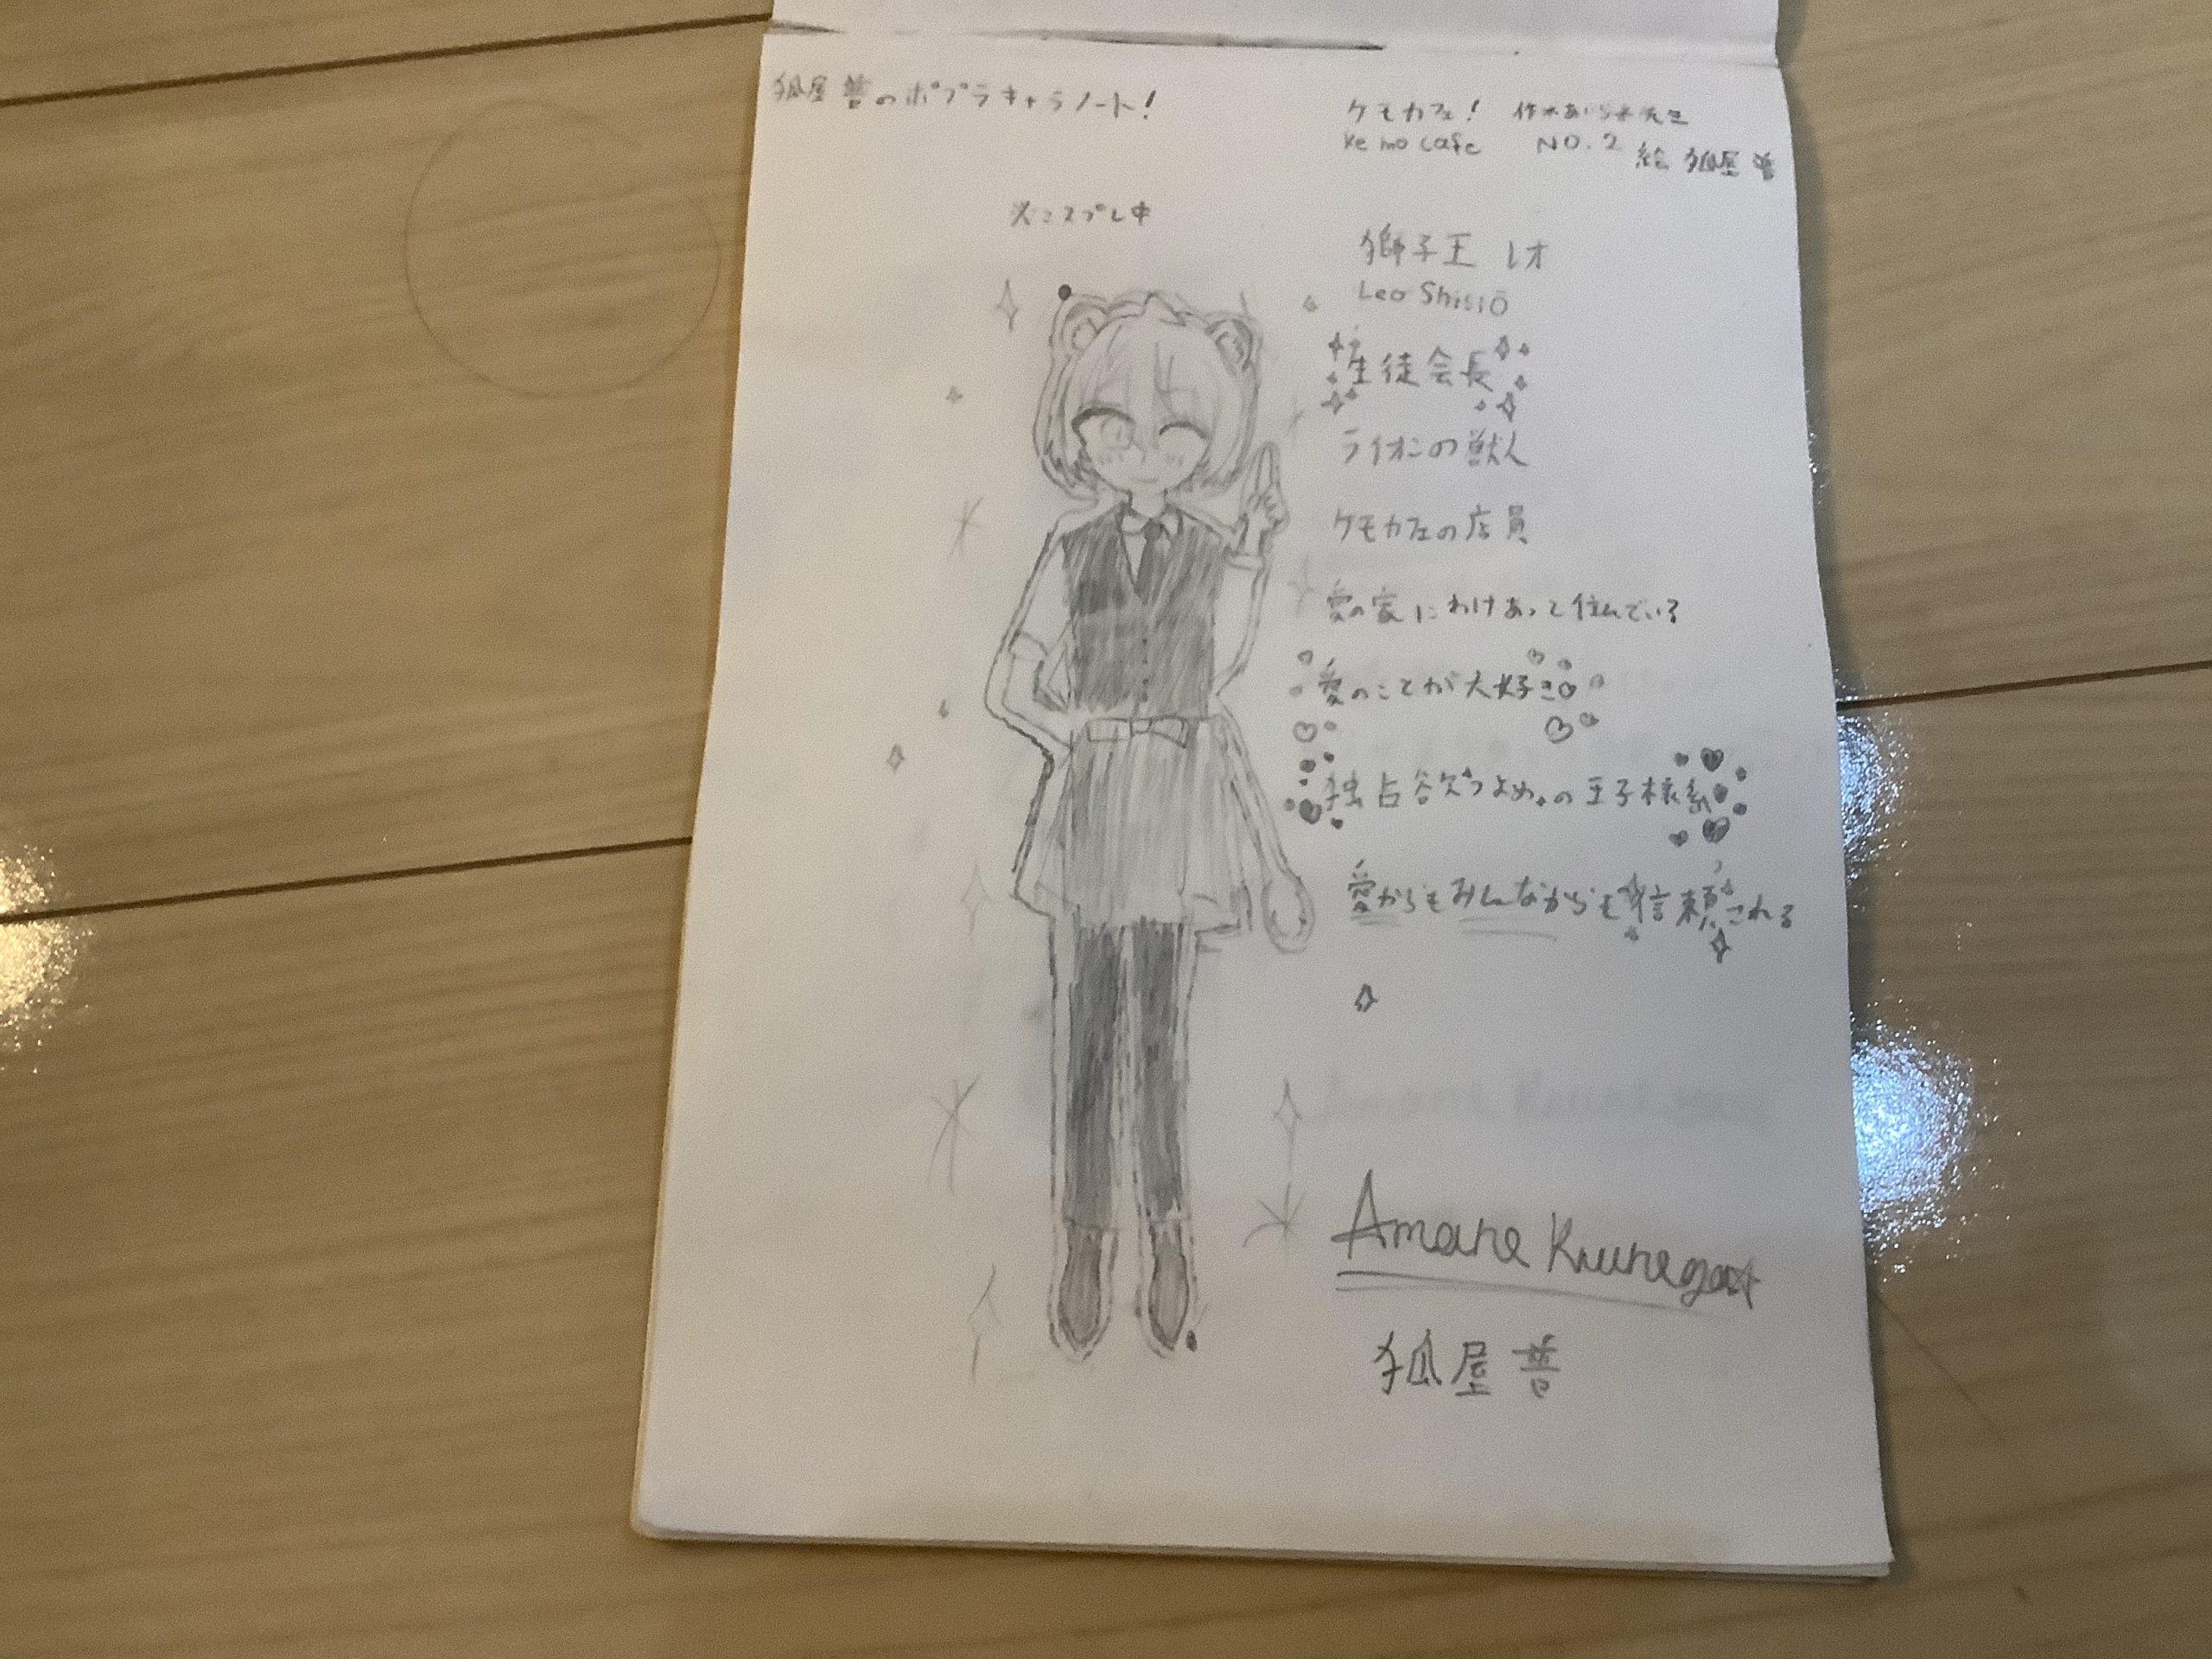 狐屋 普のポプラキャラノート！
ケモカフェ！ 作 あいら 先生
Kemo cafe NO.2
絵 狐屋 普
※コスプレ中
獅子王 レオ
Leo Shisiō
生徒会長
ライオンの獣人
ケモカフェの店員
愛の家にわけあって住んでいる
愛のことが大好き♡
独占欲つよめ。の王子様系
愛からもみんなからも信頼される
Amane
狐屋 普